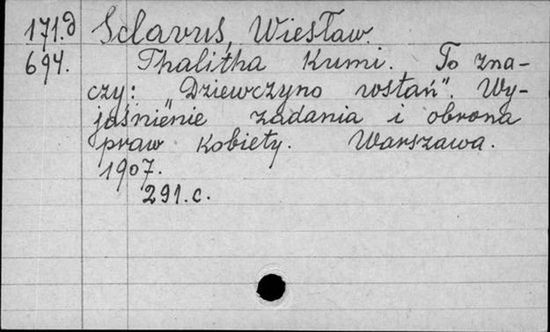 171.d Sclavus, Wiesław.
694. Thalitha Kumi. To zna-
czy: „Dziewczyno wstań". Wy-
jaśnienie zadania i obrona
praw kobiety. Warszawa.
1907.
291.c.